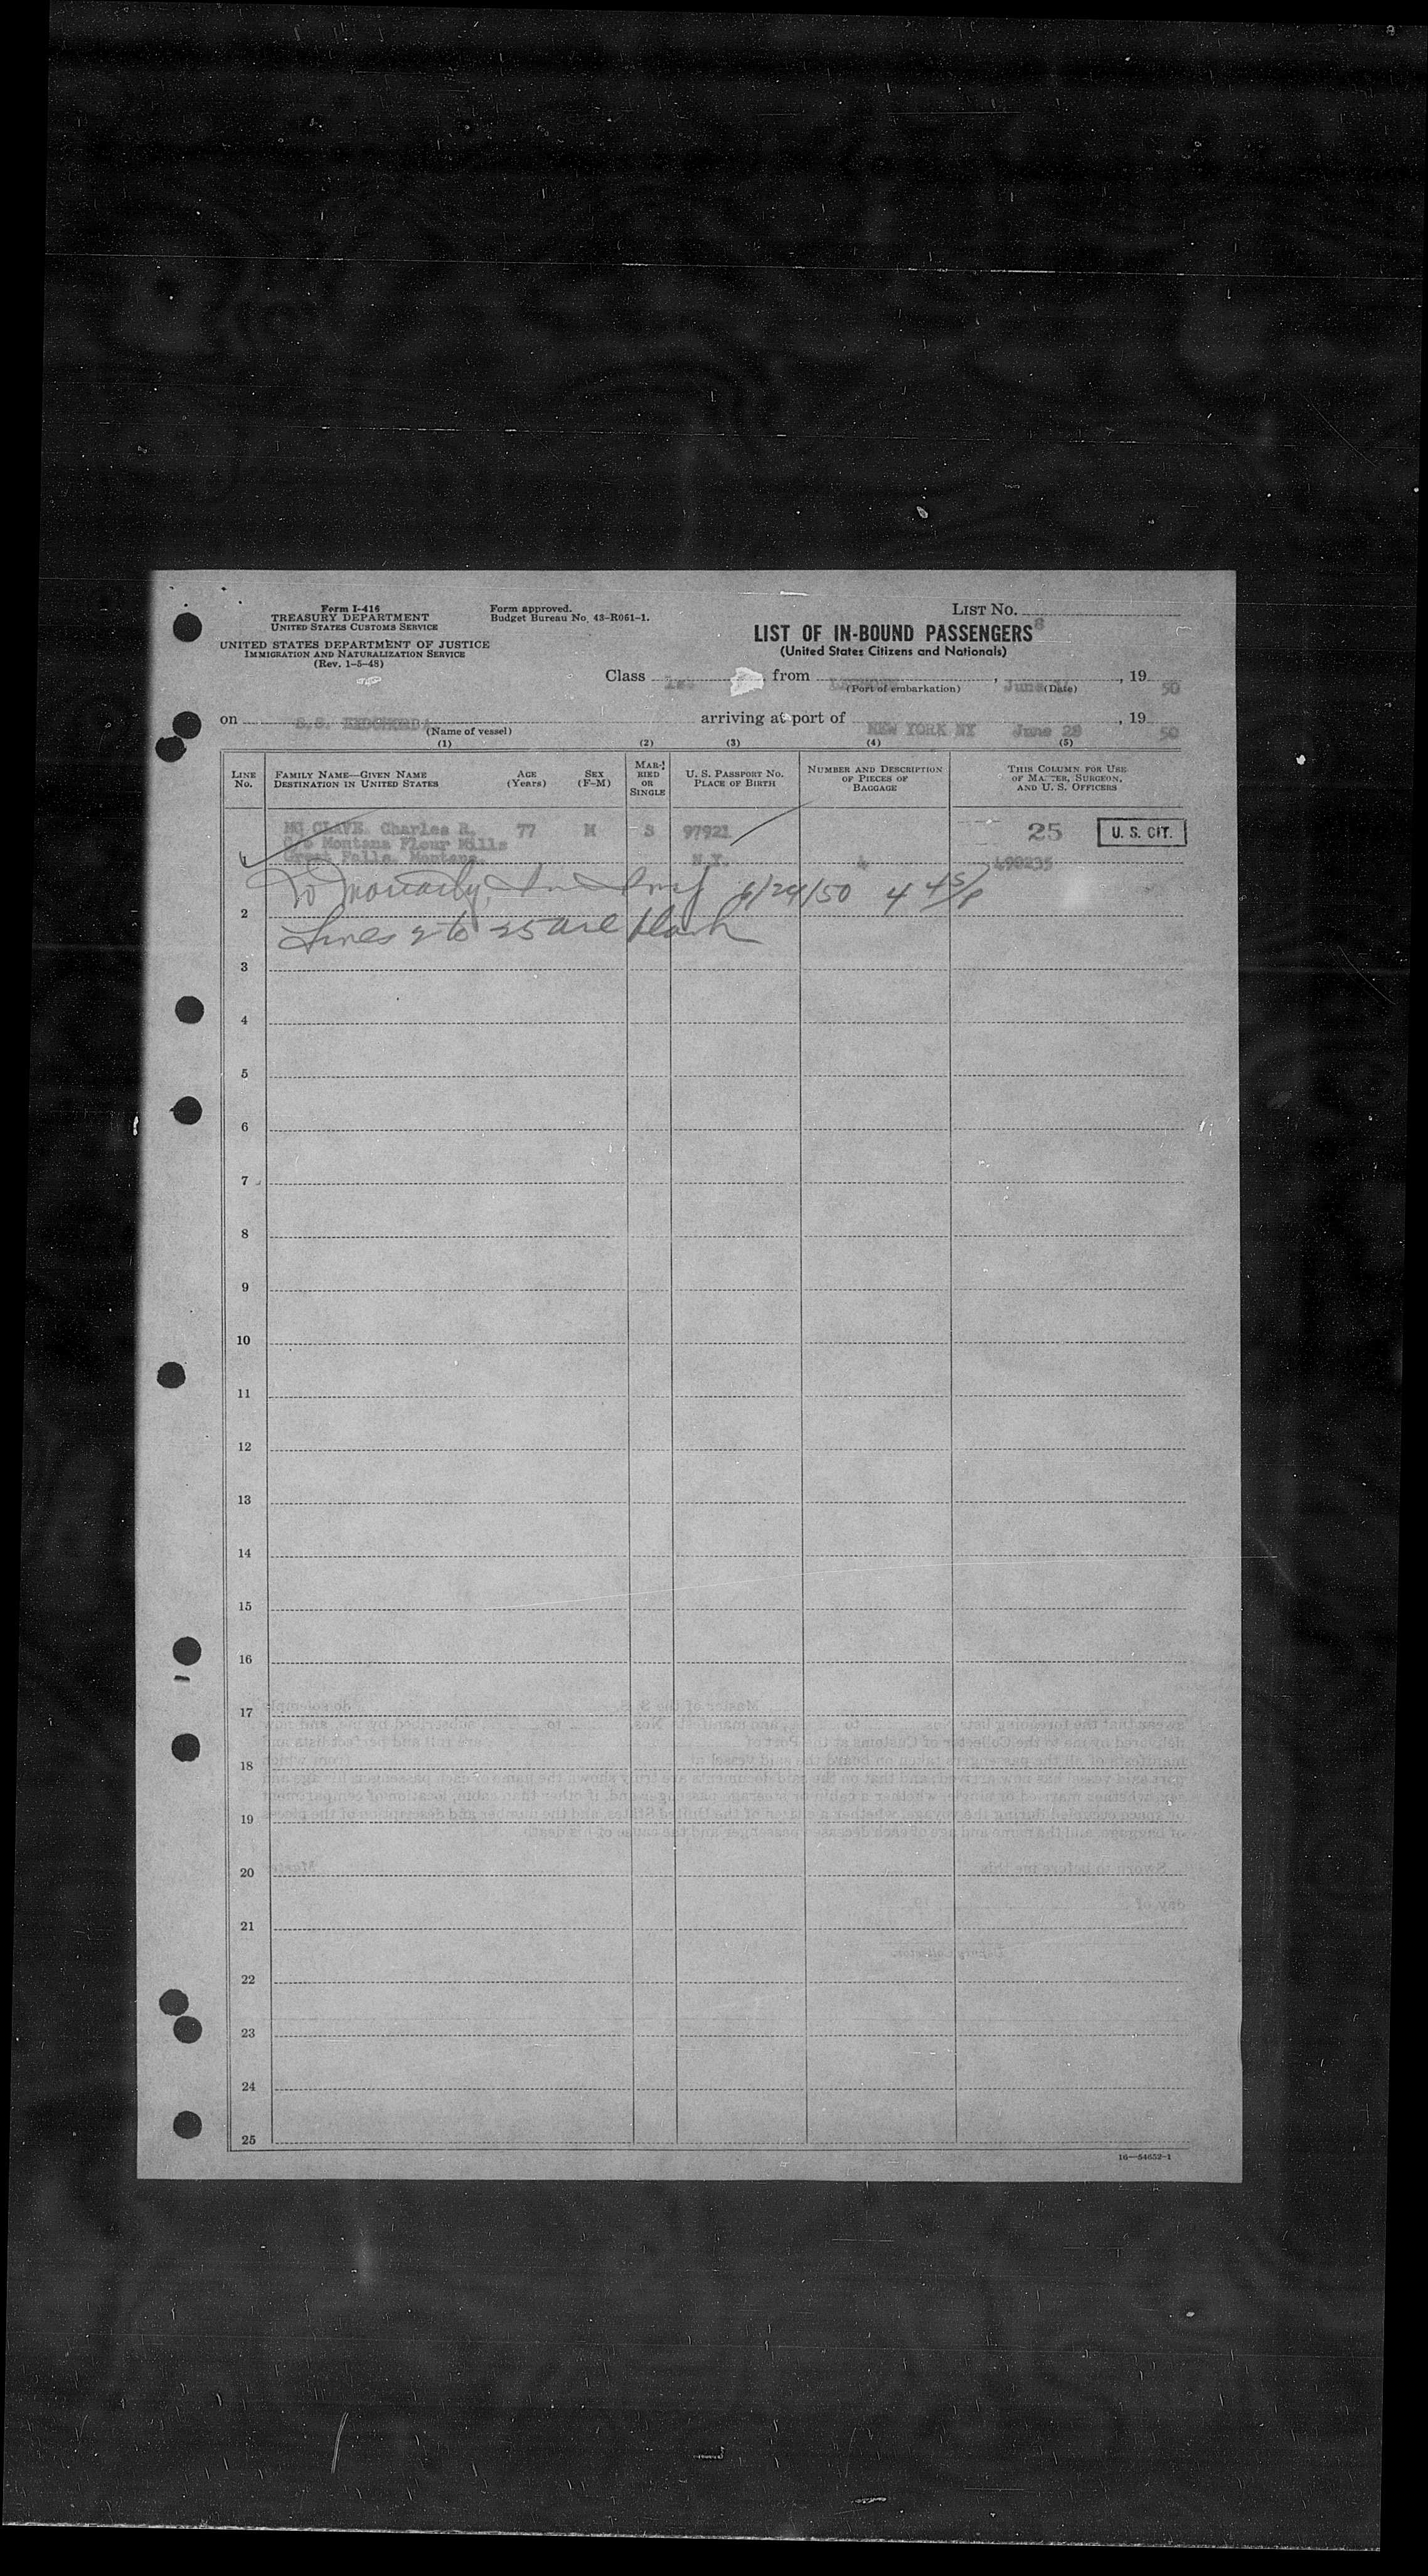 Form I-416
TREASURY DEPARTMENT
UNITED STATES CUSTOMS SERVICE
UNITED STATES DEPARTMENT OF JUSTICE
IMMIGRATION AND NATURALIZATION SERVICE
(Rev. 1-5-48)
Form approved.
Budget Bureau No. 43-R061-1.
LIST NO.
8
LIST OF IN-BOUND PASSENGERS
(United States Citizens and Nationals)
Class 1st from , June , 19 50
(Port of embarkation) (Date)
on S.S. arriving at port of NEW YORK NY June 28 , 19 50
(Name of vessel)
(1) (2) (3) (4) (5)
LINE NO.
FAMILY NAME—GIVEN NAME
DESTINATION IN UNITED STATES
AGE (Years)
SEX (F-M)
MARRIED OR SINGLE
U. S. PASSPORT NO.
PLACE OF BIRTH
NUMBER AND DESCRIPTION OF PIECES OF BAGGAGE
THIS COLUMN FOR USE OF MASTER, SURGEON, AND U. S. OFFICERS
Mc CLAVE Charles R. 77 M S 97921 25 U. S. CIT.
C/o Montana Flour Mills
1 Great Falls, Montana. N.Y. 4 490235
To Moriarty, 6/24/50 4
2
Lines 2 to 25 are blank
3
4
5
6
7
8
9
10
11
12
13
14
15
16
17
18
19
20
21
22
23
24
25
16—54652-1